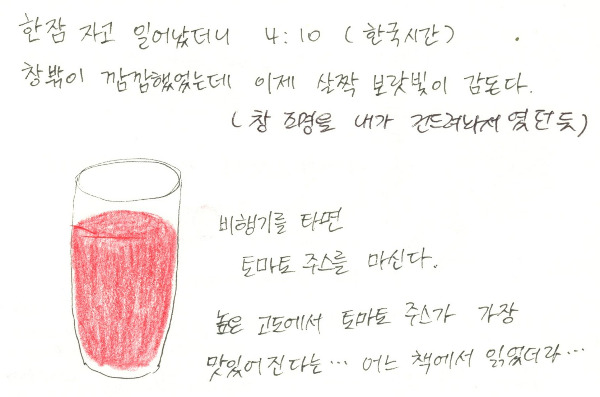 한잠 자고 일어났더니 4:10 (한국시간)
창밖이 깜깜했었는데 이제 살짝 보랏빛이 감돈다.
(창 조명을 내가 건드려놔서 였던 듯)
비행기를 타면
토마토 주스를 마신다.
높은 고도에서 토마토 주스가 가장
맛있어진다는… 어느 책에서 읽었더라…